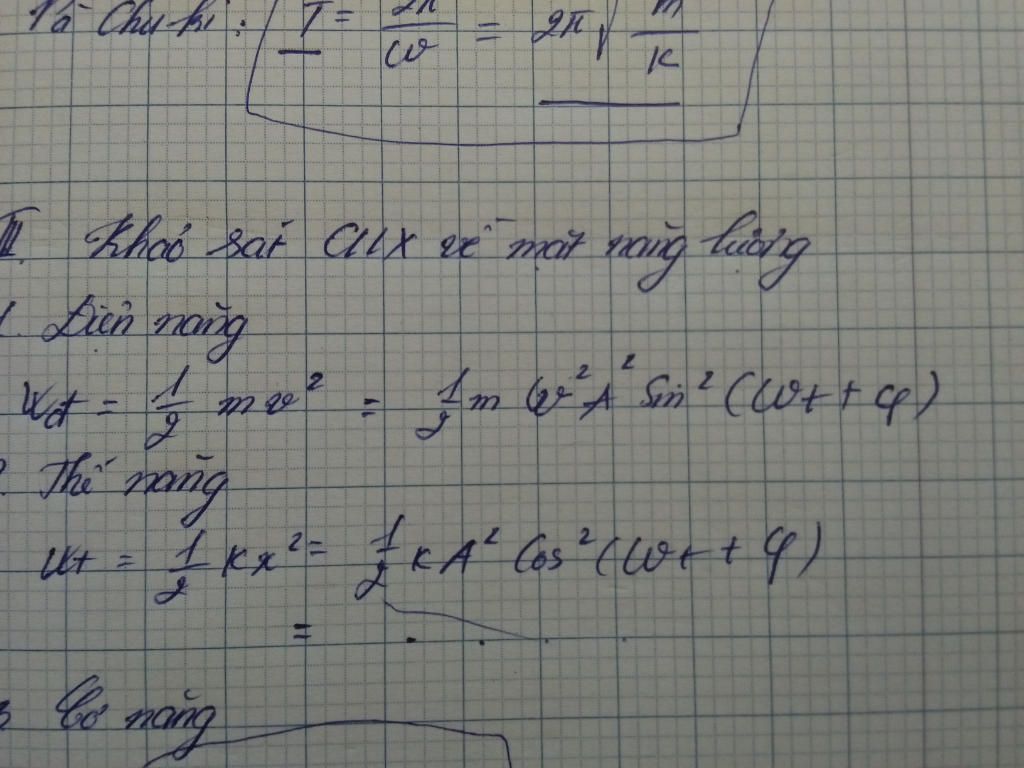 Và Chu kì : T = 2π/ω = 2π√m/k
III. Khảo sát CLLX về mặt năng lượng
1. Điển năng
Wđ = 1/2 mv² = 1/2 m ω²A² Sin² (ωt + φ)
2. Thế năng
Wt = 1/2 kx² = 1/2 kA² Cos² (ωt + φ)
= . . . .
3. Cơ năng